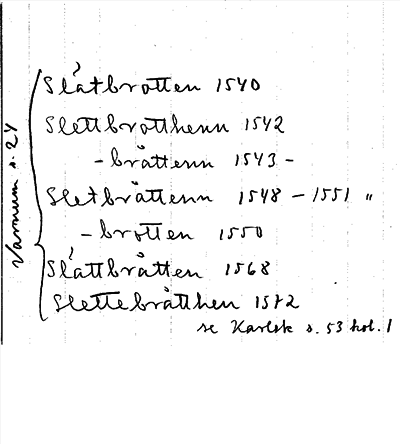 Varnum s. 24
Slåtbrotten 1540
Slettbrotthenn 1542
- bråttenn 1543 -
Sletbråttenn 1548 - 1551 "
- brotten 1550
Slåttbråtten 1568
Slettebråtthen 1572
se Karlsk s. 53 hol. 1